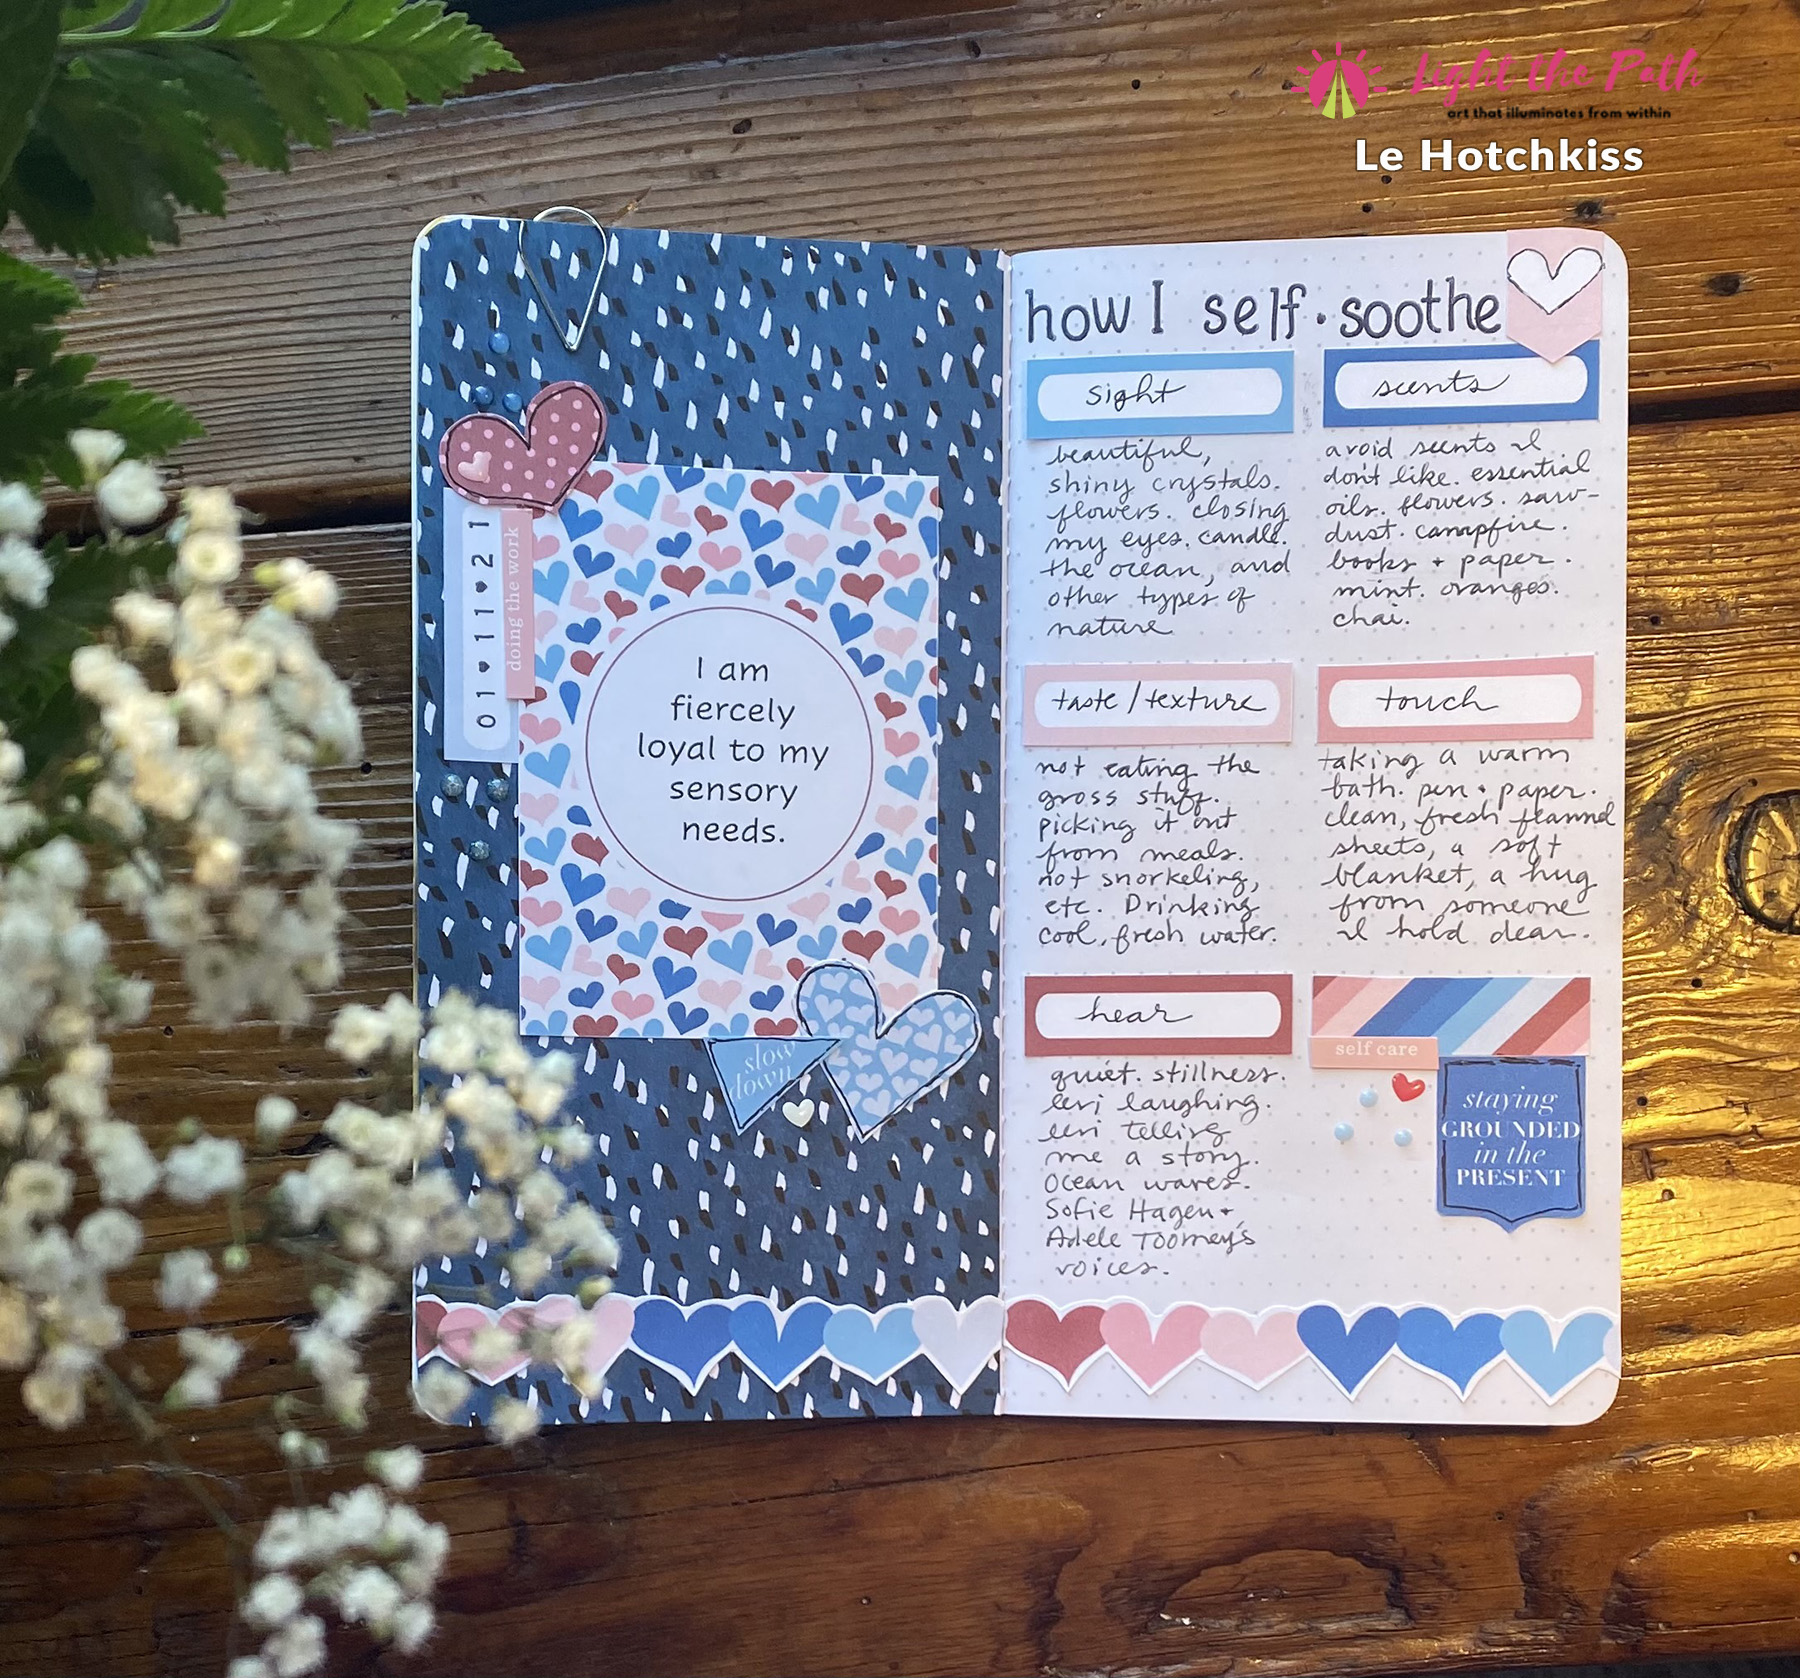 Light the Path
art that illuminates from within
Le Hotchkiss
01♥11♥21
doing the work
I am
fiercely
loyal to my
sensory
needs.
slow
down
how I self·soothe
sight
beautiful,
shiny crystals.
flowers. closing
my eyes. candle.
the ocean, and
other types of
nature
scents
avoid scents I
don't like. essential
oils. flowers. saw-
dust. campfire.
books + paper.
mint. oranges.
chai.
taste/texture
not eating the
gross stuff.
picking it out
from meals.
not snorkeling,
etc. Drinking
cool, fresh water.
touch
taking a warm
bath. pen + paper.
clean, fresh flannel
sheets, a soft
blanket, a hug
from someone
I hold dear.
hear
quiet. stillness.
Levi laughing.
Levi telling
me a story.
Ocean waves.
Sofie Hagen +
Adele Toomey's
voices.
self care
staying
GROUNDED
in the
PRESENT